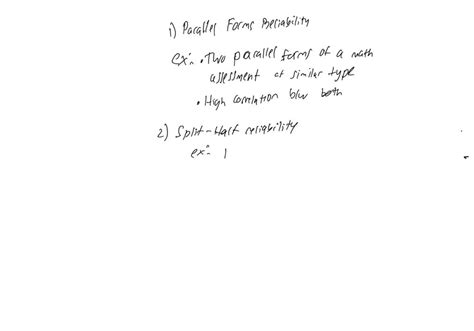 1) Parallel Forms Reliability
ex: • Two parallel forms of a math
assessment of similar type
• High correlation b/w both
2) Split-Half reliability
ex: 1